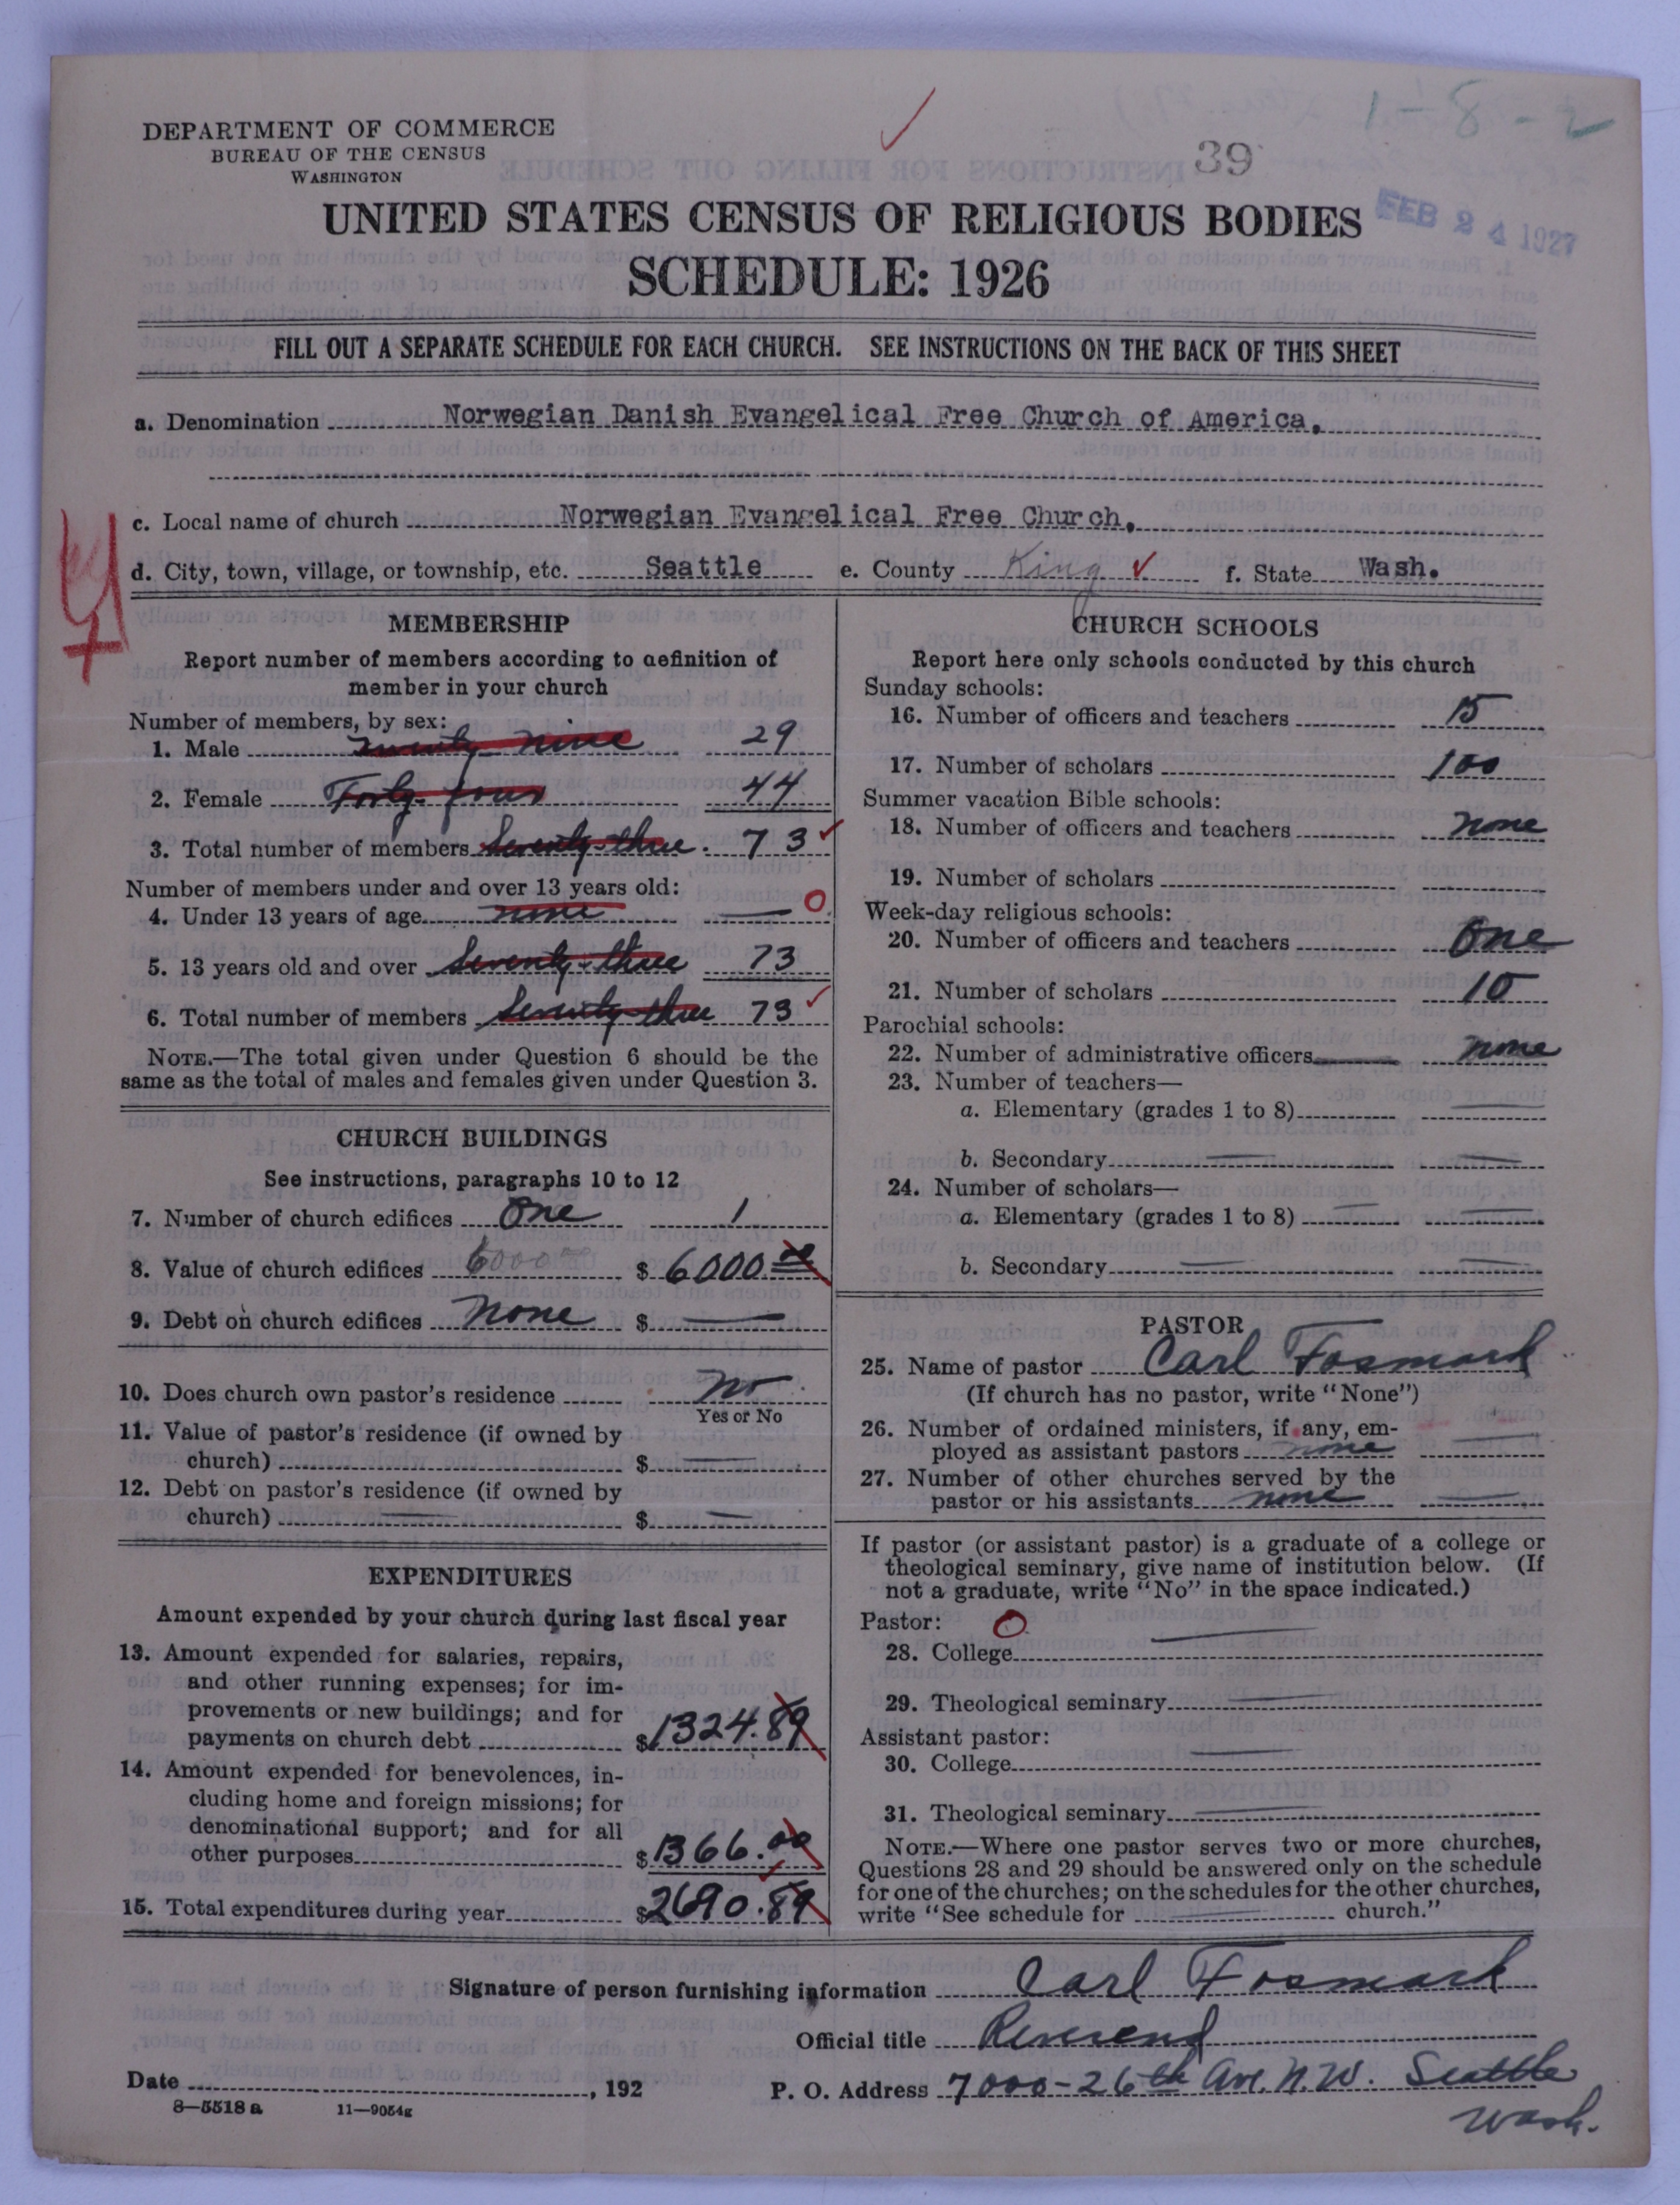 1-8-2
DEPARTMENT OF COMMERCE
BUREAU OF THE CENSUS
WASHINGTON
39
FEB 24 1927
UNITED STATES CENSUS OF RELIGIOUS BODIES
SCHEDULE: 1926
FILL OUT A SEPARATE SCHEDULE FOR EACH CHURCH. SEE INSTRUCTIONS ON THE BACK OF THIS SHEET
a. Denomination Norwegian Danish Evangelical Free Church of America.
c. Local name of church Norwegian Evangelical Free Church.
d. City, town, village, or township, etc. Seattle e. County King ✓ f. State Wash.
MEMBERSHIP
Report number of members according to definition of
member in your church
Number of members, by sex:
1. Male Twenty nine 29
2. Female Forty-four 44
3. Total number of members Seventy-three. 73 ✓
Number of members under and over 13 years old:
4. Under 13 years of age none — 0
5. 13 years old and over Seventy-three 73
6. Total number of members Seventy-three 73 ✓
NOTE.—The total given under Question 6 should be the
same as the total of males and females given under Question 3.
CHURCH BUILDINGS
See instructions, paragraphs 10 to 12
7. Number of church edifices One 1
8. Value of church edifices 6000.00 $ 6000.00
9. Debt on church edifices None $ —
10. Does church own pastor's residence No
Yes or No
11. Value of pastor's residence (if owned by
church) $ —
12. Debt on pastor's residence (if owned by
church) — $ —
EXPENDITURES
Amount expended by your church during last fiscal year
13. Amount expended for salaries, repairs,
and other running expenses; for im-
provements or new buildings; and for
payments on church debt $1324.89
14. Amount expended for benevolences, in-
cluding home and foreign missions; for
denominational support; and for all
other purposes $1366.00
15. Total expenditures during year $2690.89
CHURCH SCHOOLS
Report here only schools conducted by this church
Sunday schools:
16. Number of officers and teachers 15
17. Number of scholars 100
Summer vacation Bible schools:
18. Number of officers and teachers none
19. Number of scholars
Week-day religious schools:
20. Number of officers and teachers One
21. Number of scholars 10
Parochial schools:
22. Number of administrative officers none
23. Number of teachers—
a. Elementary (grades 1 to 8) —
b. Secondary — —
24. Number of scholars—
a. Elementary (grades 1 to 8) — —
b. Secondary — —
PASTOR
25. Name of pastor Carl Fosmark
(If church has no pastor, write "None")
26. Number of ordained ministers, if any, em-
ployed as assistant pastors none —
27. Number of other churches served by the
pastor or his assistants none —
If pastor (or assistant pastor) is a graduate of a college or
theological seminary, give name of institution below. (If
not a graduate, write "No" in the space indicated.)
Pastor: O
28. College —
29. Theological seminary —
Assistant pastor:
30. College —
31. Theological seminary —
NOTE.—Where one pastor serves two or more churches,
Questions 28 and 29 should be answered only on the schedule
for one of the churches; on the schedules for the other churches,
write "See schedule for — church."
Signature of person furnishing information Carl Fosmark
Official title Reverend
Date , 192
P. O. Address 7000-26th Ave. N.W. Seattle
Wash.
8-5518 a 11-9054g